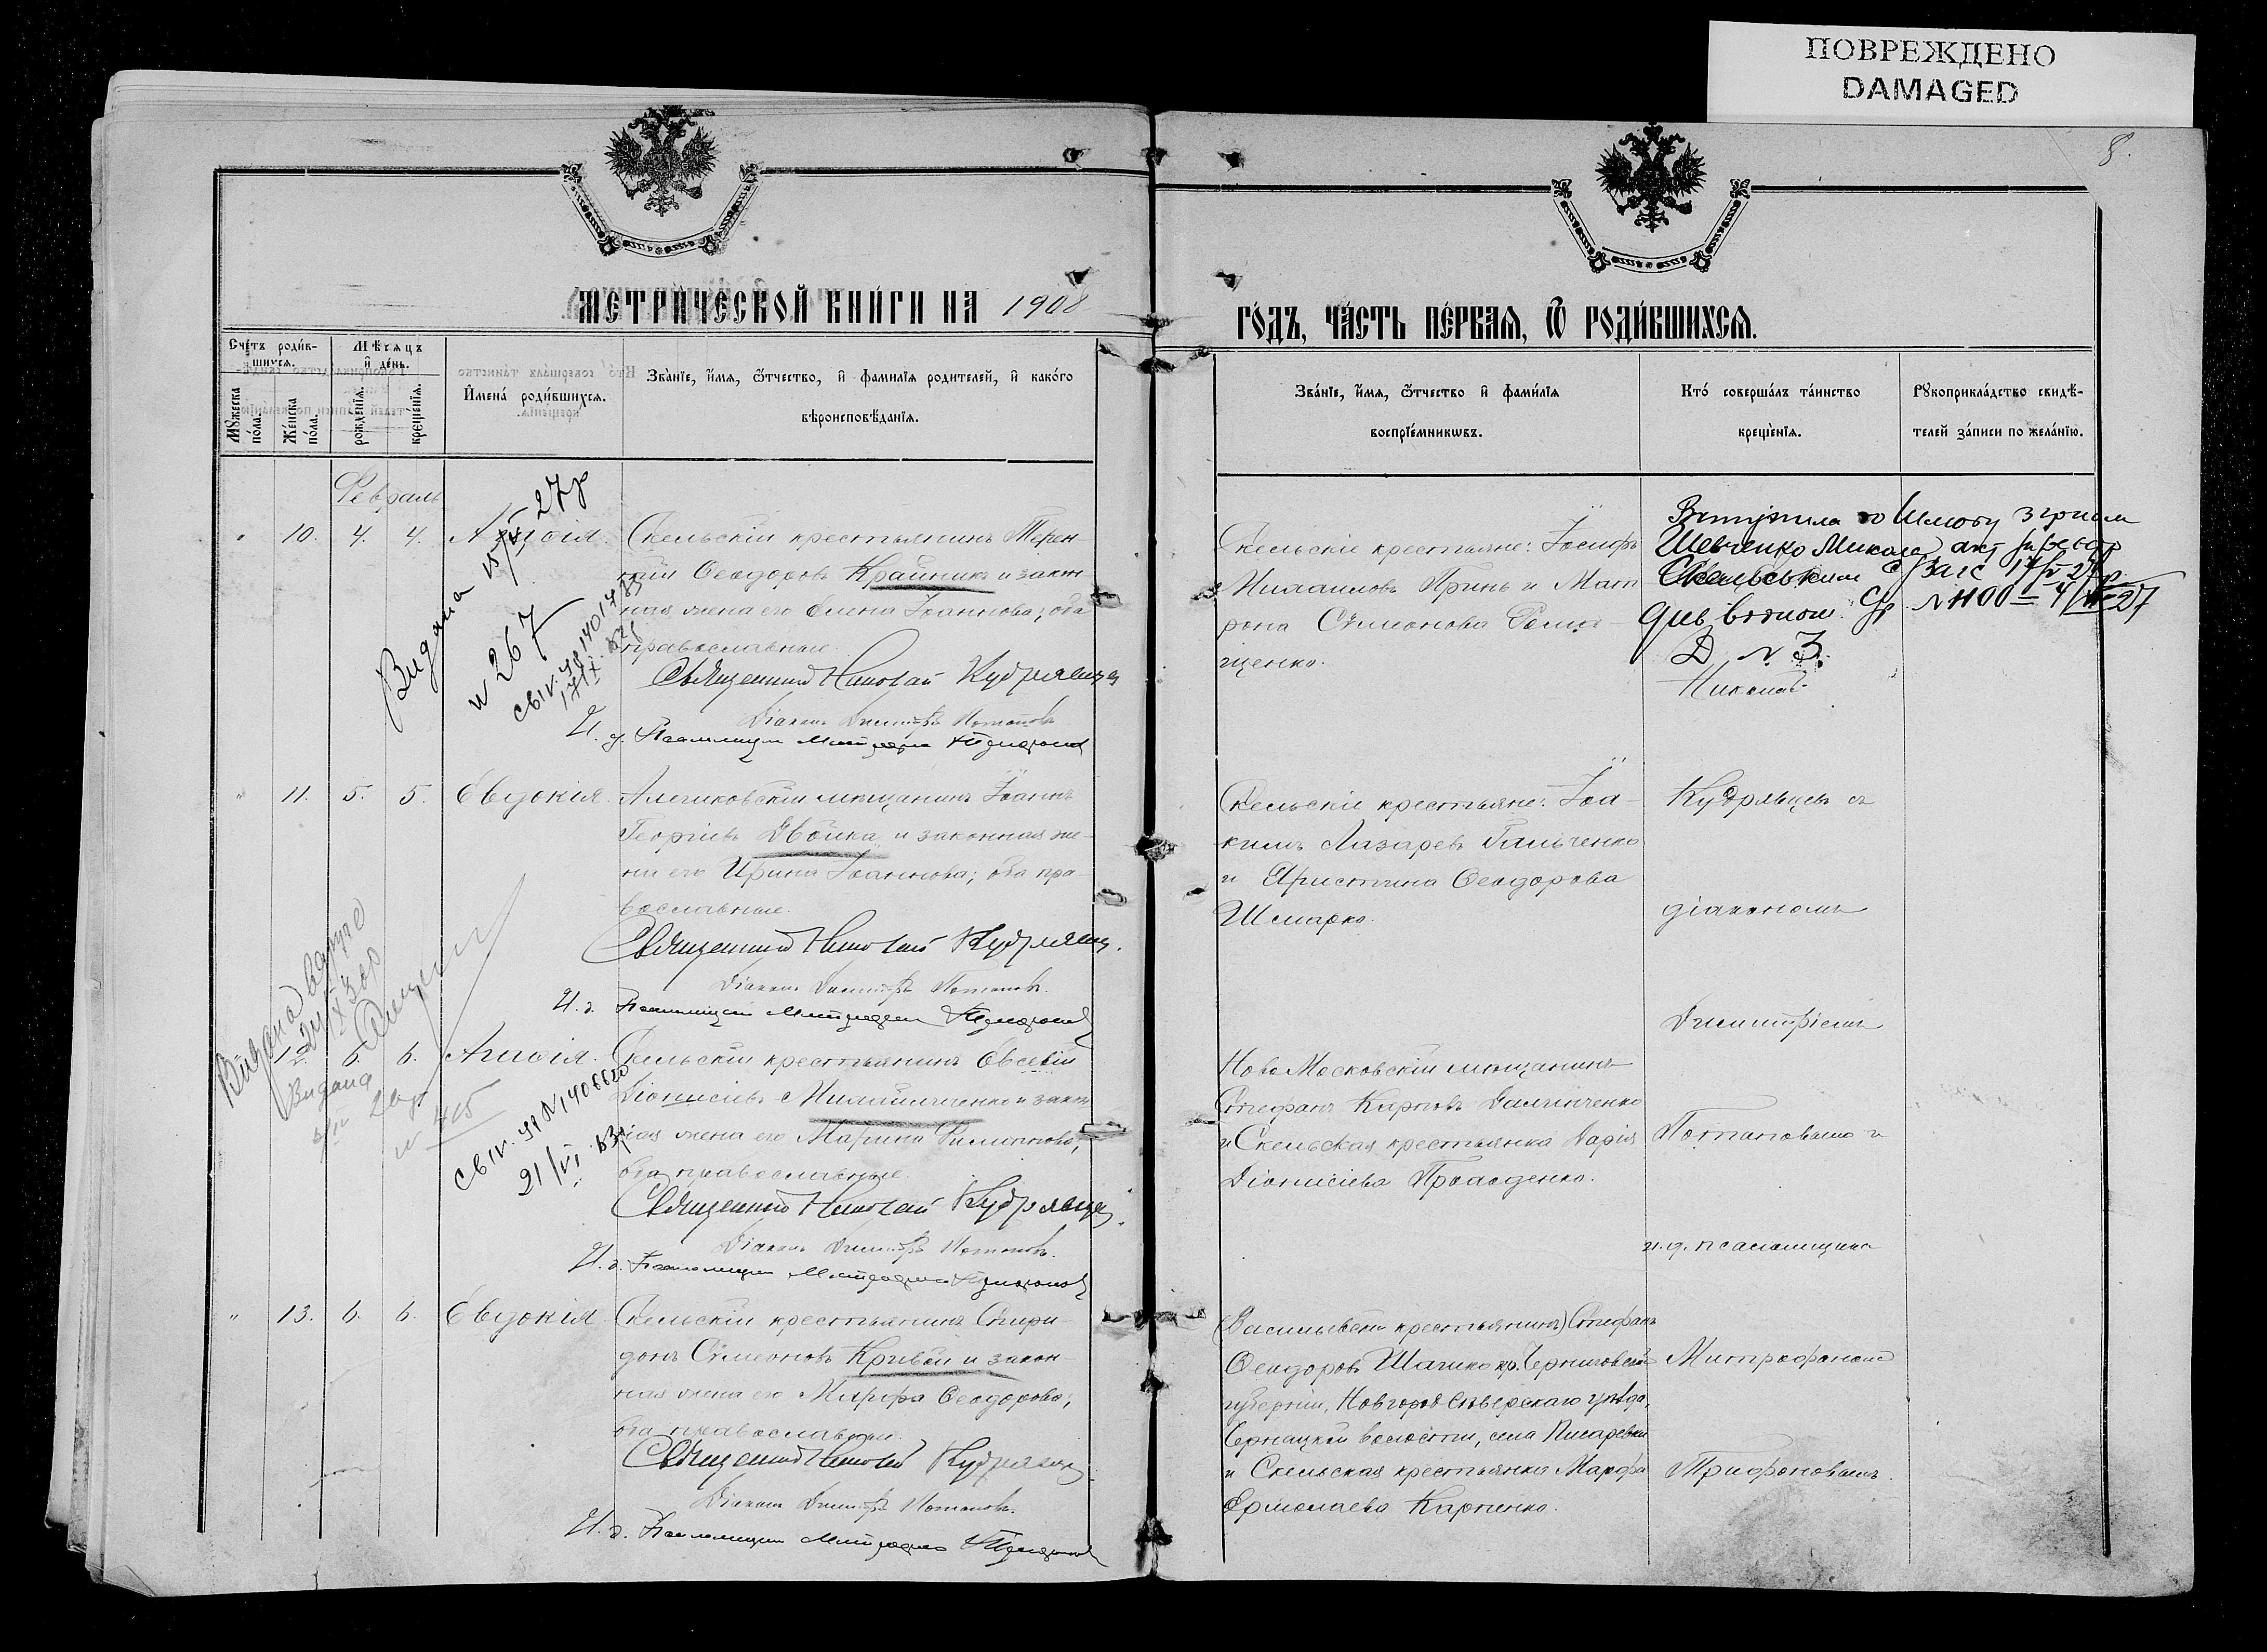 ПОВРЕЖДЕНО
DAMAGED
8.
МЕТРИЧЕСКОЙ КНИГИ НА 1908
ГОДЪ, ЧАСТЬ ПЕРВАЯ, Ѿ РОДИВШИХСЯ.
Счетъ родив-
шихся.
Мѣсяцъ
и день.
Мужеска
пола.
Женска
пола.
рожденія.
крещенія.
Имена родившихся.
Званіе, имя, ѿчество, и фамилія родителей, и какого
вѣроисповѣданія.
Званіе, имя, ѿчество и фамилія
воспріемниковъ.
Кто совершалъ таинство
крещенія.
Рукоприкладство свидѣ-
телей записи по желанію.
Февраль
10. 4. 4. Агафія.
Скельскій крестьянинъ Терен-
тій Ѳеодоровъ Крайникъ и закон
ная жена его Елена Іоаннова; оба
православные.
Священникъ Николай Кудрявцев
Діаконъ Димитрій Потаповъ
И. д. Псаломщика Митрофанъ Трифоновъ
Видана 15/V 27р
№ 267
Скельскіе крестьяне: Іосифъ
Михаиловъ Принь и Мат
рона Сѵмеонова
щенко.
Вступила во Шлюбу з громом
Шевченко Миколаю акт
Скельським ЗАГС
№ 1100
№ 3.
Николай
" 11. 5. 5. Евдокія.
Алешковскій мѣщанинъ Іоаннъ
Георгіевъ Двойка и законная же-
на его Ирина Іоаннова; оба пра-
вославные.
Священникъ Николай Кудрявцев.
Діаконъ Димитрій Потаповъ.
И. д. Псаломщика Митрофанъ Трифоновъ
Скельскіе крестьяне: Іоа-
кимъ Лазаревъ Гальченко
и Христина Ѳеодорова
Шмарко.
Кудрявцевъ съ
діакономъ
Димитріемъ
12. 6. 6. Агафія.
Скельскій крестьянинъ Евсевій
Діонисіевъ Михайличенко и закон
ная жена его Марина Филиппова;
оба православные.
Священникъ Николай Кудрявцев.
Діаконъ Димитрій Потаповъ.
И. д. Псаломщика Митрофанъ Трифоновъ
Видана
№ 405
21/VI
Ново Московскій мѣщанинъ
Стефанъ Карповъ Далинченко
и Скельская крестьянка Дарія
Діонисіева Проаденко.
Потаповымъ и
и. д. псаломщика
" 13. 6. 6. Евдокія.
Скельскій крестьянинъ Спири-
донъ Сѵмеоновъ Кривой и закон-
ная жена его Марфа Ѳеодорова;
оба православные.
Священникъ Николай Кудрявцев
Діаконъ Димитрій Потаповъ.
И. д. Псаломщика Митрофанъ Трифоновъ
(Васильевскій крестьянинъ) Стефанъ
Ѳеодоровъ Шашко кр. Черниговской
губерніи, Новгородъ Сѣверскаго уѣзда,
Чернацкой волости, села Писаревки
и Скельская крестьянка Марфа
Ермолаева Карпенко.
Митрофаномъ
Трифоновымъ.